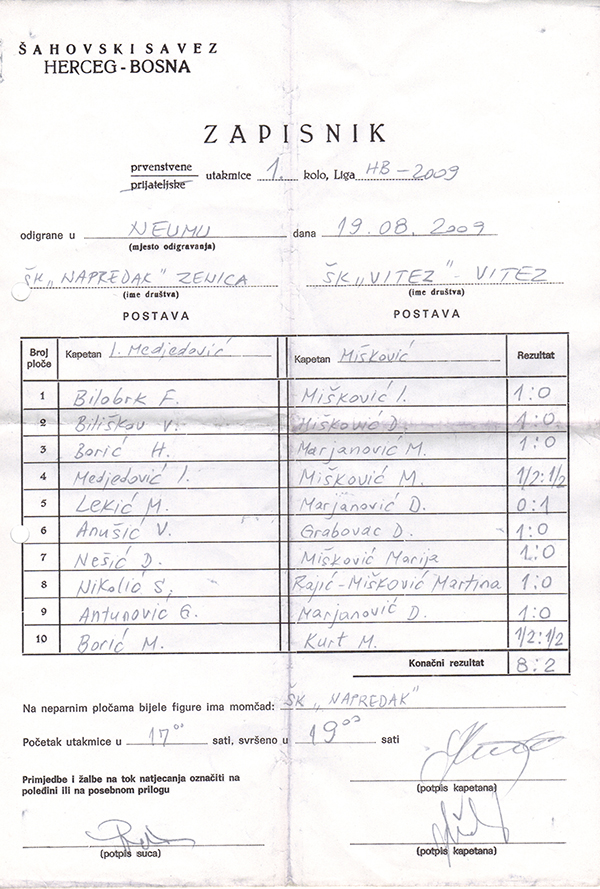 ŠAHOVSKI SAVEZ
HERCEG-BOSNA
ZAPISNIK
prvenstvene
prijateljske
utakmice 1. kolo, Liga HB-2009
odigrane u NEUMU dana 19.08.2009
(mjesto odigravanja)
ŠK „NAPREDAK" ZENICA ŠK „VITEZ" - VITEZ
(ime društva) (ime društva)
POSTAVA POSTAVA
Broj ploče Kapetan I. Medjedović Kapetan Mišković Rezultat
1 Bilobrk F. Mišković I. 1:0
2 Biliškov V. Mišković D. 1:0
3 Borić H. Marjanović M. 1:0
4 Medjedović I. Mišković M. 1/2:1/2
5 Lekić M. Marjanović D. 0:1
6 Anušić V. Grabovac D. 1:0
7 Nešić D. Mišković Marija 1:0
8 Nikolić S. Rajić-Mišković Martina 1:0
9 Antunović G. Marjanović D. 1:0
10 Borić M. Kurt M. 1/2:1/2
Konačni rezultat 8:2
Na neparnim pločama bijele figure ima momčad: ŠK „NAPREDAK"
Početak utakmice u 17°° sati, svršeno u 19°° sati
Primjedbe i žalbe na tok natjecanja označiti na
poleđini ili na posebnom prilogu
(potpis kapetana)
(potpis suca) (potpis kapetana)